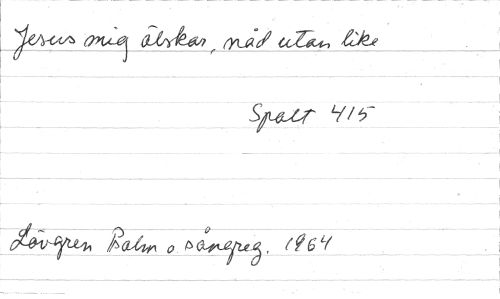 Jesus mig älskar, nåd utan like
Spalt 415
Lövgren Psalm o sångreg. 1964